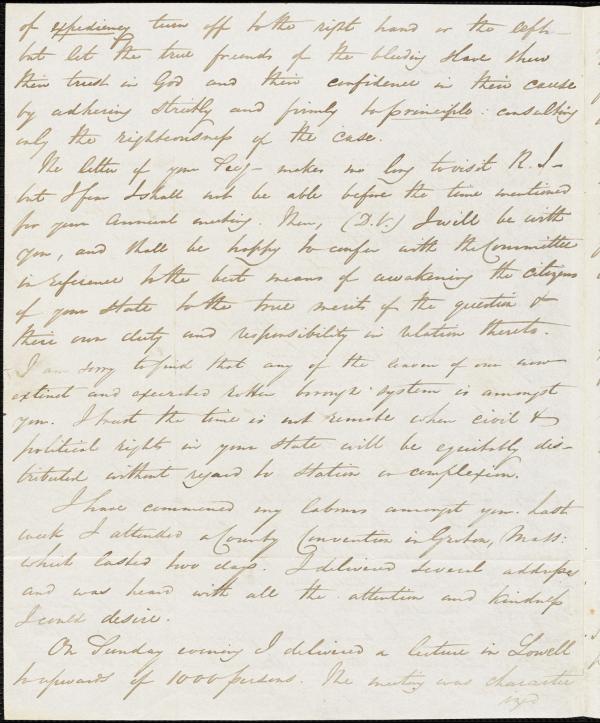 of expediency turn off to the right hand or the left—
but let the true friends of the bleeding slave shew
their trust in God and their confidence in their cause
by adhering strictly and firmly to principle: consulting
only the righteousness of the case.
The letter of your Secy— makes me long to visit R. I—
but I fear I shall not be able before the time mentioned
for your annual meeting. Then, (D.V.) I will be with
you, and shall be happy to confer with the Committee
in reference to the best means of awakening the citizens
of your state to the true merits of the question &
their own duty and responsibility in relation thereto.
I am sorry to find that any of the leaven of our now
extinct and execrated rotten borough system is amongst
you. I trust the time is not remote when civil &
political rights in your state will be equitably dis-
tributed without regard to station or complexion.
I have commenced my labours amongst you. Last
week I attended a County Convention in Groton, Mass:
which lasted two days. I delivered several addresses
and was heard with all the attention and kindness
I could desire.
On Sunday evening I delivered a lecture in Lowell
to upwards of 1000 persons. The meeting was character
ized